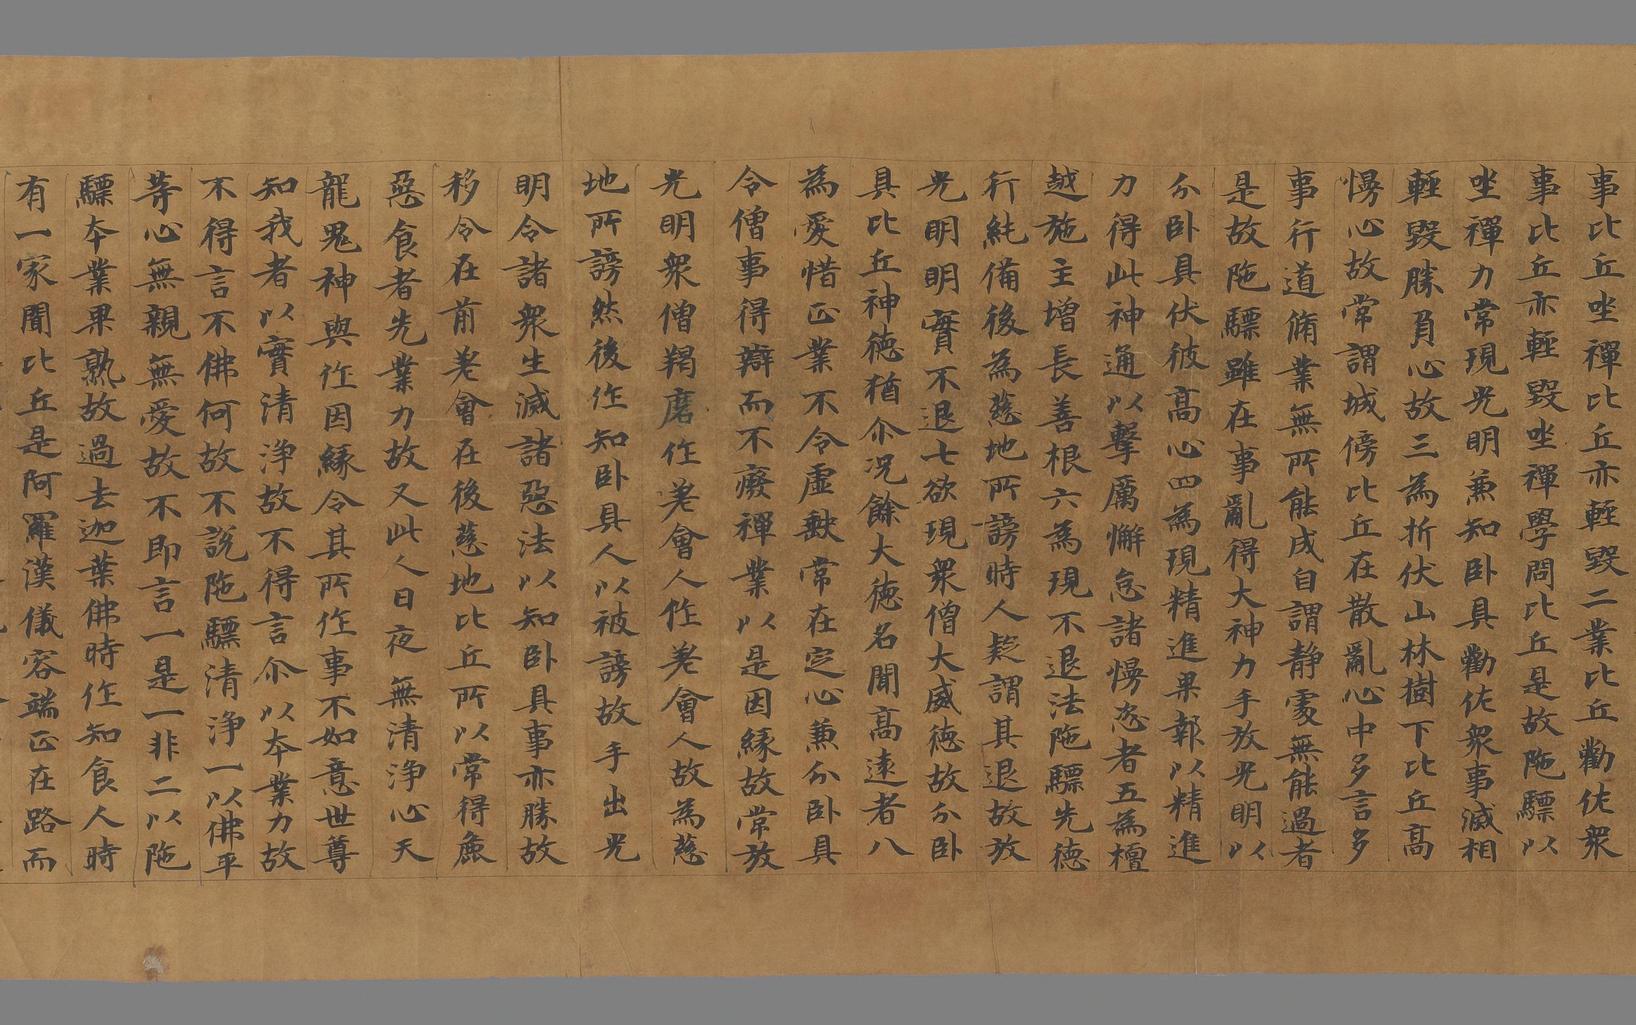 事比丘坐禪比丘亦輕毀二業比丘勸佐衆
事比丘亦輕毀坐禪學問比丘是故陁驃以
坐禪力常現光明兼知卧具勸佐衆事滅相
輕毀勝負心故三為折伏山林樹下比丘高
慢心故常謂城傍比丘在散亂心中多言多
事行道脩業無所能成自謂静處無能過者
是故陁驃雖在事亂得大神力手放光明以
分卧具伏彼高心四為現精進果報以精進
力得此神通以擊厲懈怠諸慢恣者五為檀
越施主增長善根六為現不退法陁驃先德
行純備後為慈地所謗時人疑謂其退故放
光明明實不退七欲現衆僧大威德故分卧
具比丘神德猶尒况餘大德名聞高遠者八
為愛惜正業不令虛缺常在定心兼分卧具
令僧事得辯而不癈禪業以是因緣故常放
光明衆僧羯磨作差會人作差會人故為慈
地所謗然後作知卧具人以被謗故手出光
明令諸衆生滅諸惡法以知卧具事亦勝故
移令在前差會在後慈地比丘所以常得麁
惡食者先業力故又此人日夜無清淨心天
龍鬼神與作因緣令其所作事不如意世尊
知我者以實清淨故不得言尒以本業力故
不得言不佛何故不說陁驃清淨一以佛平
等心無親無愛故不即言一是一非二以陁
驃本業果熟故過去迦葉佛時作知食人時
有一家聞比丘是阿羅漢儀容端正在路而